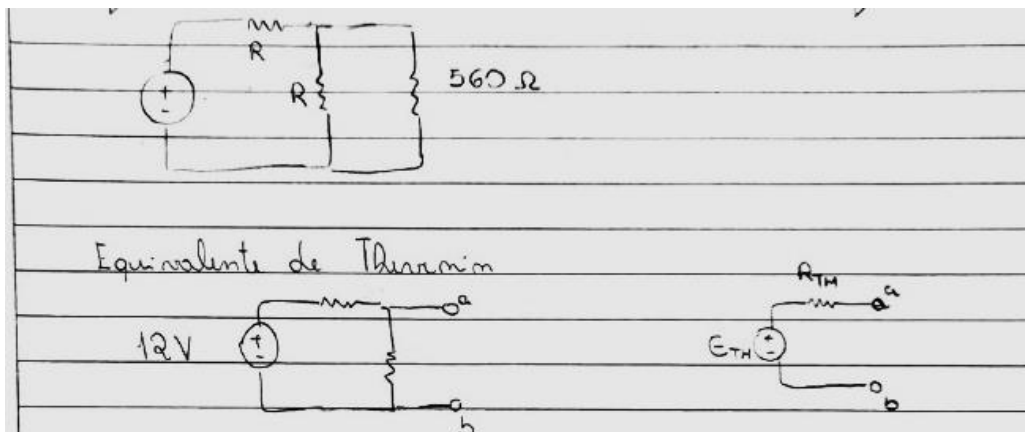 R
R
560 Ω
+
-
Equivalente de Thevenin
RTH
a
a
12V
+
-
ETH
+
-
b
b